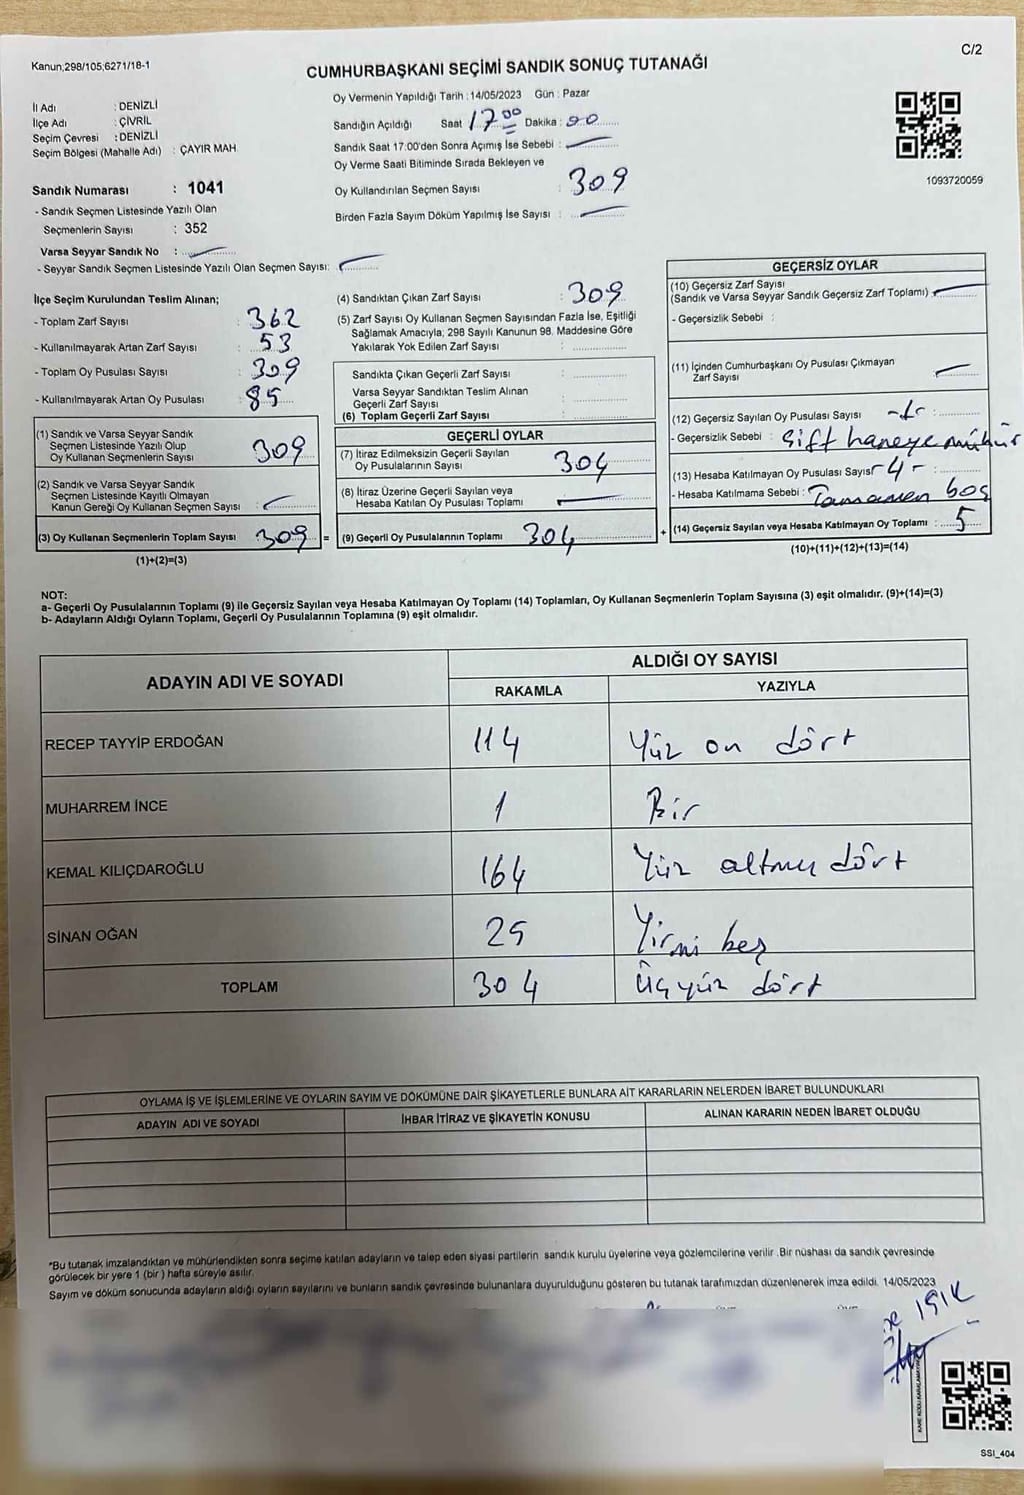 C/2
Kanun,298/105;6271/18-1
CUMHURBAŞKANI SEÇİMİ SANDIK SONUÇ TUTANAĞI
İl Adı : DENİZLİ
İlçe Adı : ÇİVRİL
Seçim Çevresi : DENİZLİ
Seçim Bölgesi (Mahalle Adı) : ÇAYIR MAH.
Sandık Numarası : 1041
- Sandık Seçmen Listesinde Yazılı Olan
Seçmenlerin Sayısı : 352
Varsa Seyyar Sandık No :
- Seyyar Sandık Seçmen Listesinde Yazılı Olan Seçmen Sayısı:
Oy Vermenin Yapıldığı Tarih :14/05/2023 Gün : Pazar
Sandığın Açıldığı Saat 17 00 Dakika : 00
Sandık Saat 17:00'den Sonra Açımış İse Sebebi :
Oy Verme Saati Bitiminde Sırada Bekleyen ve
Oy Kullandırılan Seçmen Sayısı : 309
Birden Fazla Sayım Döküm Yapılmış İse Sayısı :
1093720059
İlçe Seçim Kurulundan Teslim Alınan;
- Toplam Zarf Sayısı : 362
- Kullanılmayarak Artan Zarf Sayısı : 53
- Toplam Oy Pusulası Sayısı : 309
- Kullanılmayarak Artan Oy Pusulası : 85
(1) Sandık ve Varsa Seyyar Sandık
Seçmen Listesinde Yazılı Olup
Oy Kullanan Seçmenlerin Sayısı 309
(2) Sandık ve Varsa Seyyar Sandık
Seçmen Listesinde Kayıtlı Olmayan
Kanun Gereği Oy Kullanan Seçmen Sayısı :
(3) Oy Kullanan Seçmenlerin Toplam Sayısı : 309 =
(1)+(2)=(3)
(4) Sandıktan Çıkan Zarf Sayısı : 309
(5) Zarf Sayısı Oy Kullanan Seçmen Sayısından Fazla İse, Eşitliği
Sağlamak Amacıyla; 298 Sayılı Kanunun 98. Maddesine Göre
Yakılarak Yok Edilen Zarf Sayısı :
Sandıkta Çıkan Geçerli Zarf Sayısı :
Varsa Seyyar Sandıktan Teslim Alınan
Geçerli Zarf Sayısı :
(6) Toplam Geçerli Zarf Sayısı :
GEÇERLİ OYLAR
(7) İtiraz Edilmeksizin Geçerli Sayılan
Oy Pusulalarının Sayısı 304
(8) İtiraz Üzerine Geçerli Sayılan veya
Hesaba Katılan Oy Pusulası Toplamı
(9) Geçerli Oy Pusulalarının Toplamı 304 +
GEÇERSİZ OYLAR
(10) Geçersiz Zarf Sayısı
(Sandık ve Varsa Seyyar Sandık Geçersiz Zarf Toplamı)
- Geçersizlik Sebebi :
(11) İçinden Cumhurbaşkanı Oy Pusulası Çıkmayan
Zarf Sayısı
(12) Geçersiz Sayılan Oy Pusulası Sayısı -1- :
- Geçersizlik Sebebi : Çift haneye mühür
(13) Hesaba Katılmayan Oy Pusulası Sayısı -4- :
- Hesaba Katılmama Sebebi : Tamamen boş
(14) Geçersiz Sayılan veya Hesaba Katılmayan Oy Toplamı : 5
(10)+(11)+(12)+(13)=(14)
NOT:
a- Geçerli Oy Pusulalarının Toplamı (9) ile Geçersiz Sayılan veya Hesaba Katılmayan Oy Toplamı (14) Toplamları, Oy Kullanan Seçmenlerin Toplam Sayısına (3) eşit olmalıdır. (9)+(14)=(3)
b- Adayların Aldığı Oyların Toplamı, Geçerli Oy Pusulalarının Toplamına (9) eşit olmalıdır.
ADAYIN ADI VE SOYADI ALDIĞI OY SAYISI
RAKAMLA YAZIYLA
RECEP TAYYİP ERDOĞAN 114 Yüz on dört
MUHARREM İNCE 1 Bir
KEMAL KILIÇDAROĞLU 164 Yüz altmış dört
SİNAN OĞAN 25 Yirmi beş
TOPLAM 304 Üçyüz dört
OYLAMA İŞ VE İŞLEMLERİNE VE OYLARIN SAYIM VE DÖKÜMÜNE DAİR ŞİKAYETLERLE BUNLARA AİT KARARLARIN NELERDEN İBARET BULUNDUKLARI
ADAYIN ADI VE SOYADI İHBAR İTİRAZ VE ŞİKAYETİN KONUSU ALINAN KARARIN NEDEN İBARET OLDUĞU
*Bu tutanak imzalandıktan ve mühürlendikten sonra seçime katılan adayların ve talep eden siyasi partilerin sandık kurulu üyelerine veya gözlemcilerine verilir .Bir nüshası da sandık çevresinde
görülecek bir yere 1 (bir ) hafta süreyle asılır.
Sayım ve döküm sonucunda adayların aldığı oyların sayılarını ve bunların sandık çevresinde bulunanlara duyurulduğunu gösteren bu tutanak tarafımızdan düzenlenerek imza edildi. 14/05/2023
IŞIK
KARE KODU KARALAMAYINIZ
SSI_404